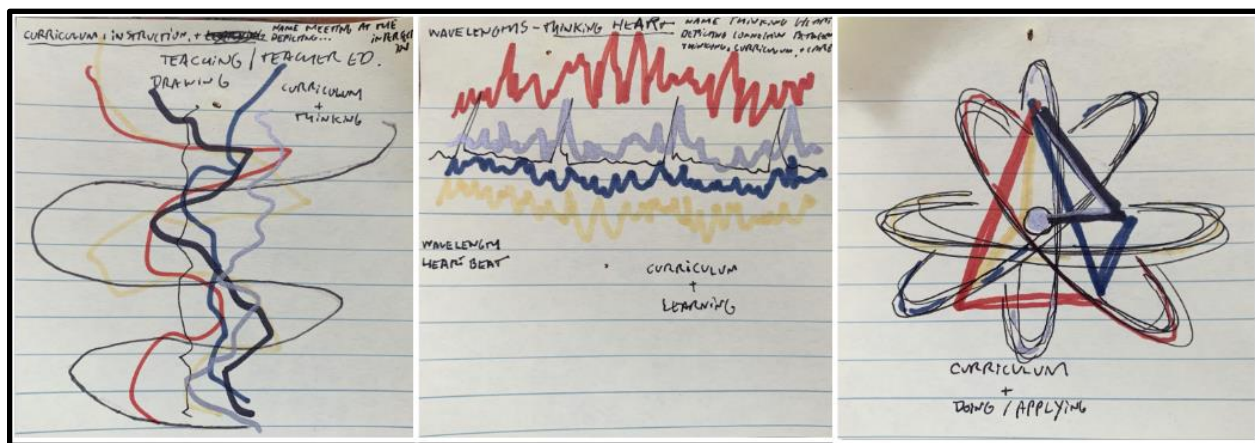 CURRICULUM + INSTRUCTION, +
NAME MEETING AT THE
DEPICTING...
TEACHING / TEACHER ED.
DRAWING
CURRICULUM
+
THINKING
WAVELENGTHS - THINKING HEART
NAME THINKING HEART
DEPICTING CONNECTION BETWEEN
THINKING, CURRICULUM, + CARE
WAVELENGTH
HEART BEAT
CURRICULUM
+
LEARNING
CURRICULUM
+
DOING / APPLYING